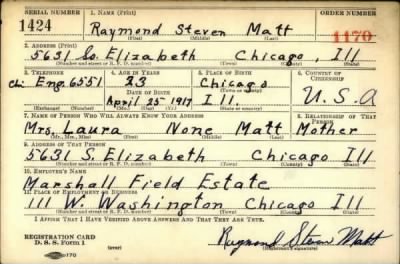 SERIAL NUMBER 1. NAME (Print) ORDER NUMBER
1424 Raymond Steven Matt 1170
(First) (Middle) (Last)
2. ADDRESS (Print)
5631 So. Elizabeth Chicago, Ill
(Number and street or R. F. D. number) (Town) (County) (State)
3. TELEPHONE 4. AGE IN YEARS 5. PLACE OF BIRTH 6. COUNTRY OF CITIZENSHIP
Ch. Eng. 6551 23 Chicago
DATE OF BIRTH (Town or county)
April 25 1917 Ill. U.S.A
(Exchange) (Number) (Mo.) (Day) (Yr.) (State or country)
7. NAME OF PERSON WHO WILL ALWAYS KNOW YOUR ADDRESS 8. RELATIONSHIP OF THAT PERSON
Mrs. Laura None Matt Mother
(Mr., Mrs., Miss) (First) (Middle) (Last)
9. ADDRESS OF THAT PERSON
5631 S. Elizabeth Chicago Ill
(Number and street or R. F. D. number) (Town) (County) (State)
10. EMPLOYER'S NAME
Marshall Field Estate
11. PLACE OF EMPLOYMENT OR BUSINESS
111 W. Washington Chicago Ill
(Number and street or R. F. D. number) (Town) (County) (State)
I AFFIRM THAT I HAVE VERIFIED ABOVE ANSWERS AND THAT THEY ARE TRUE.
REGISTRATION CARD
D. S. S. Form 1 (over) Raymond Steven Matt